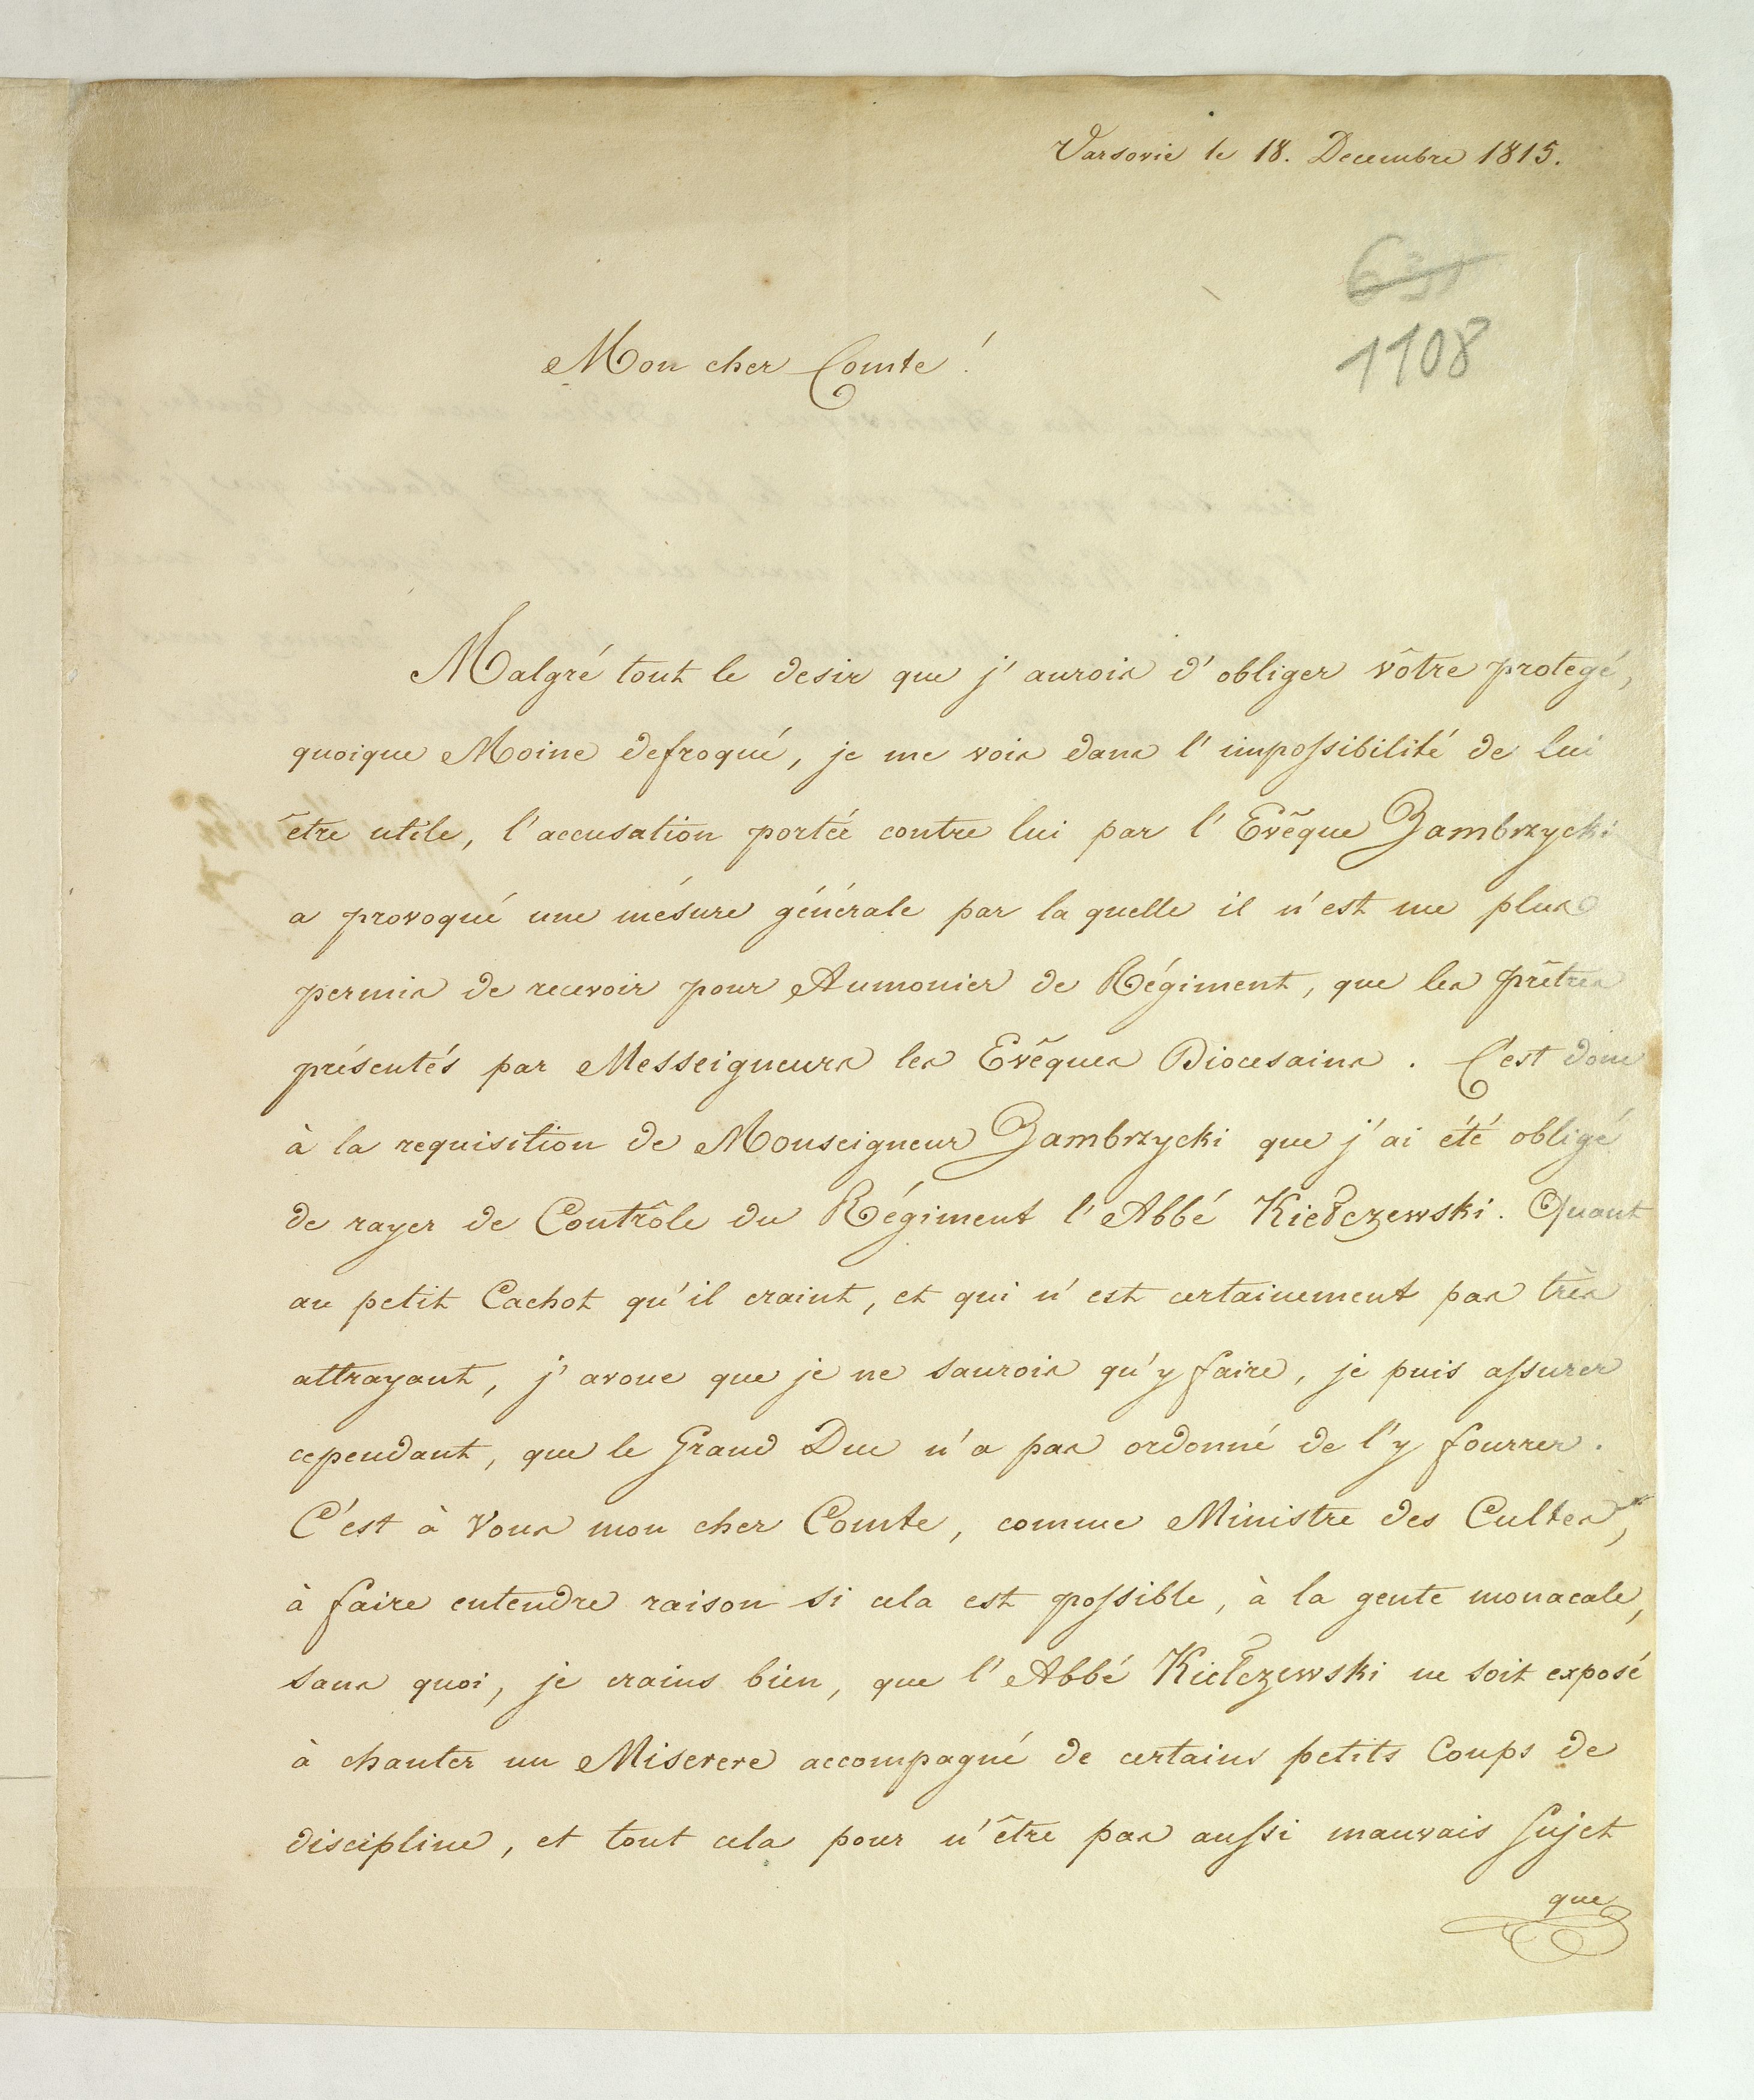 Varsovie le 18. Decembre 1815.
1108
Mon cher Comte!
Malgré tout le desir que j'aurois d'obliger vôtre protegé,
quoique Moine defroqué, je me vois dans l'impossibilité de lui
être utile, l'accusation portée contre lui par l'Evêque Zambrzycki
a provoqué une mésure générale par la quelle il n'est me plus
permis de recevoir pour Aumonier de Régiment, que les prêtres
présentés par Messeigneurs les Evêques Diocesains. C'est donc
à la requisition de Monseigneur Zambrzycki que j'ai été obligé
de rayer de Contrôle du Régiment l'Abbé Kiełczewski. Quant
au petit Cachot qu'il craint, et qui n'est certainement pas très
attrayant, j'avoue que je ne saurois qu'y faire, je puis assurer
cependant, que le Grand Duc n'a pas ordonné de l'y fourrer.
C'est à Vous mon cher Comte, comme Ministre des Cultes,
à faire entendre raison si cela est possible, à la gente monacale,
sans quoi, je crains bien, que l'Abbé Kiełczewski ne soit exposé
à chanter un Miserere accompagné de certains petits Coups de
discipline, et tout cela pour n'être pas aussi mauvais Sujet
que